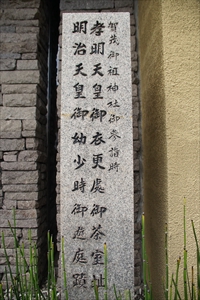 賀茂御祖神社御参詣時
孝明天皇御衣更處御茶室址
明治天皇御幼少時御遊庭蹟